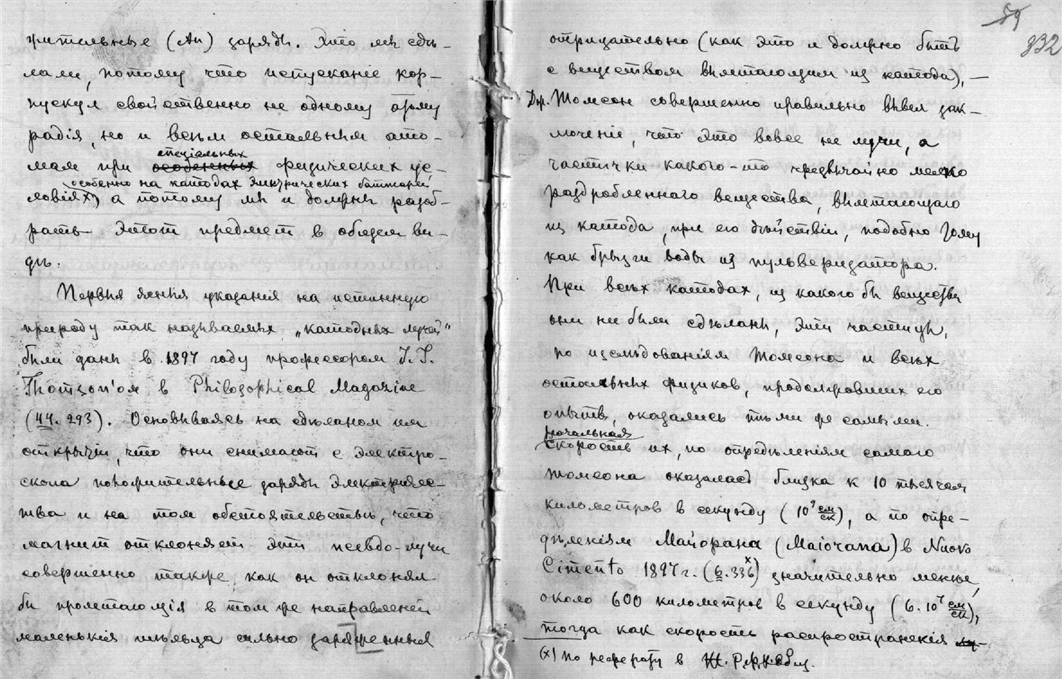 жительные (Ан) заряды. Это мы сдѣ-
лали, потому что испусканіе кор-
пускул свойственно не одному атому
радія, но и всѣм остальным ато-
мам при особенных физических ус-
спеціальных
ловіях, а потому мы и должны разоб-
особенно на катодах электрических баттарей
рать этот предмет в общем ви-
дѣ.
Первыя ясныя указанія на истинную
природу так называемых „катодных лучей"
были даны в 1897 году профессором J. J.
Thomson'ом в Philosophical Magazine
(44. 293). Основываясь на сдѣланом им
открытіи, что они снимают с электро-
скопа положительные заряды электриче-
тва и на том обстоятельствѣ, что
магнит отклоняет эти псевдо-лучи
совершенно также, как он отклонял
бы пролетающія в том же направленіи
маленькія тѣльца сильно заряженныя
59
332
отрицательно (как это и должно быть
с веществом вылетающим из катода), —
Др. Томсон совершенно правильно вывел зак-
лючение, что это вовсе не лучи, а
частички какого-то чрезвычайно мелко
раздробленного вещества, вылетающаго
из катода, при его дѣйствіи, подобно тому
как брызги воды из пульверизатора.
При всѣх катодах, из какого бы вещества
они ни были сдѣланы, эти частицы,
по изслѣдованіям Томсона и всѣх
остальных физиков, продолжавших его
опыты, оказались тѣми же самыми.
Начальная
скорость их, по опредѣленіям самого
Томсона оказалась близка к 10 тысячам
километров в секунду (10⁹ см/ск), а по опре-
дѣленіям Майорана (Maiorana) в Nuovo
Cimento 1897 г. (6.336 ˣ) значительно меньше,
около 600 километров в секунду (6.10⁷ см/ск),
тогда как скорость распространенія
(x) по реферату в Ж. Р. Ф. Х. Общ.